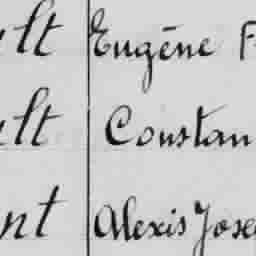 lt Eugène F
lt Constan
nt Alexis Jose